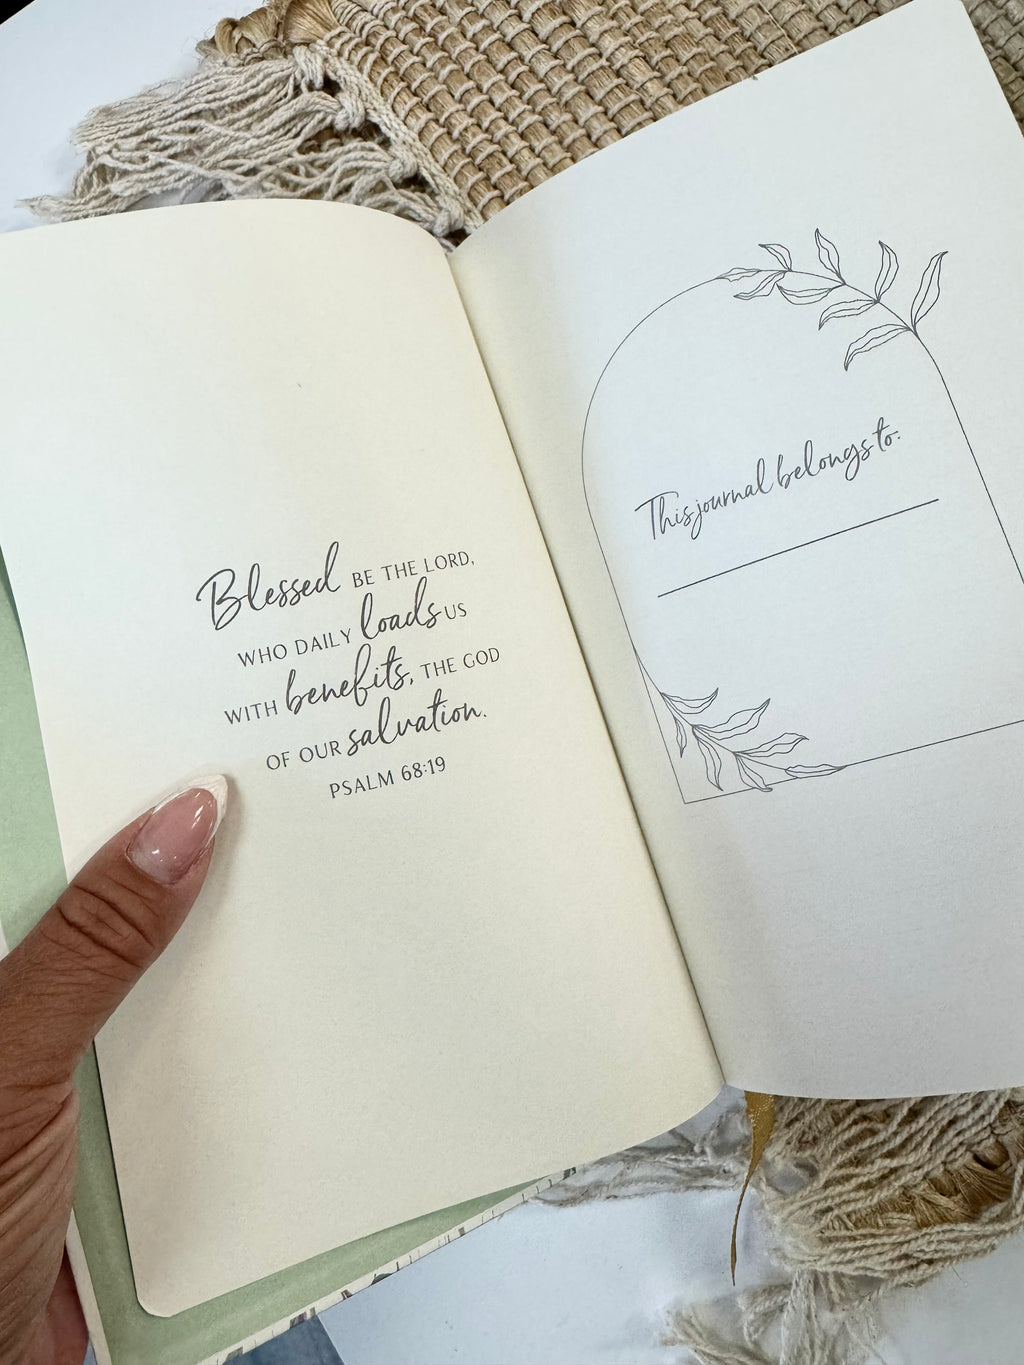 Blessed BE THE LORD,
WHO DAILY loads US
WITH benefits, THE GOD
OF OUR salvation.
PSALM 68:19
This journal belongs to: